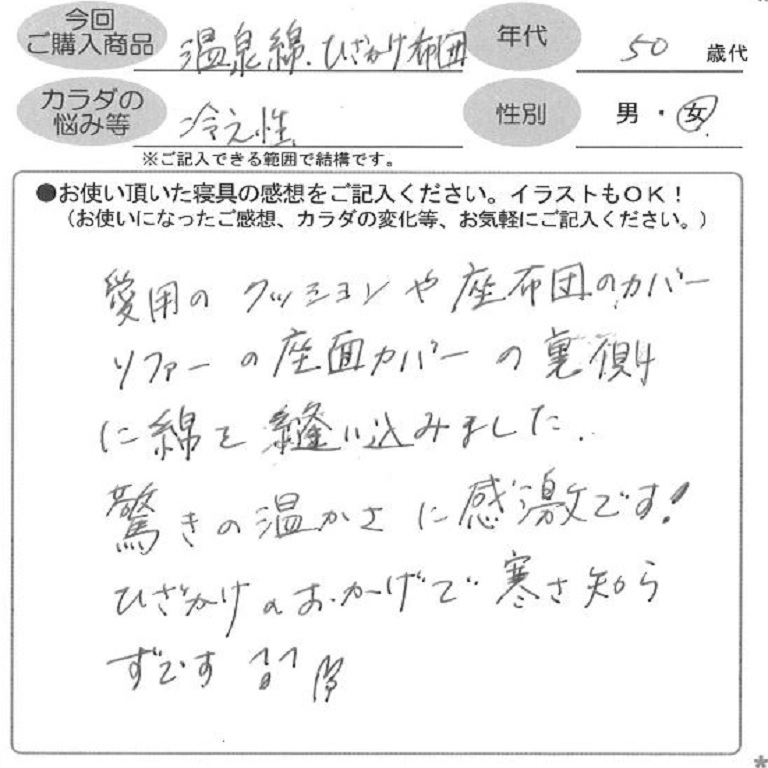 今回
ご購入商品
温泉綿.ひざかけ布団
年代
50 歳代
カラダの
悩み等
冷え性
性別
男・女
※ご記入できる範囲で結構です。
●お使い頂いた寝具の感想をご記入ください。イラストもOK!
(お使いになったご感想、カラダの変化等、お気軽にご記入ください。)
愛用の クッションや座布団のカバー
ソファーの座面カバーの裏側
に綿を縫い込みました.
驚きの温かさに感激です!
ひざかけのおかげで寒さ知ら
ずです
*